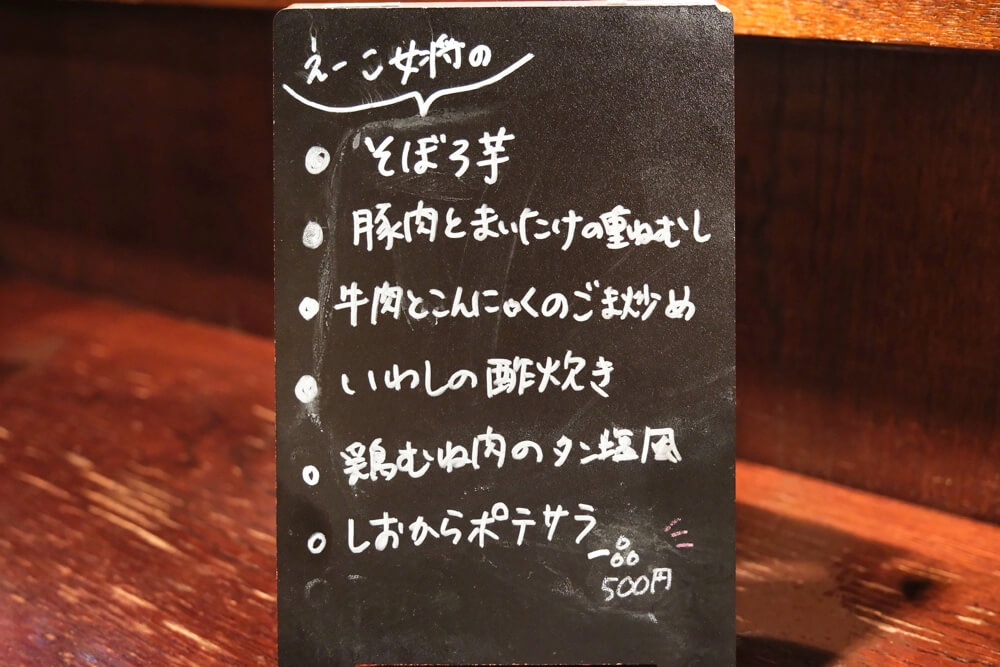 えーこ女将の
そぼろ芋
豚肉とまいたけの重ねむし
牛肉とこんにゃくのごま炒め
いわしの酢炊き
鶏むね肉のタン塩風
しおからポテサラ
一品
500円